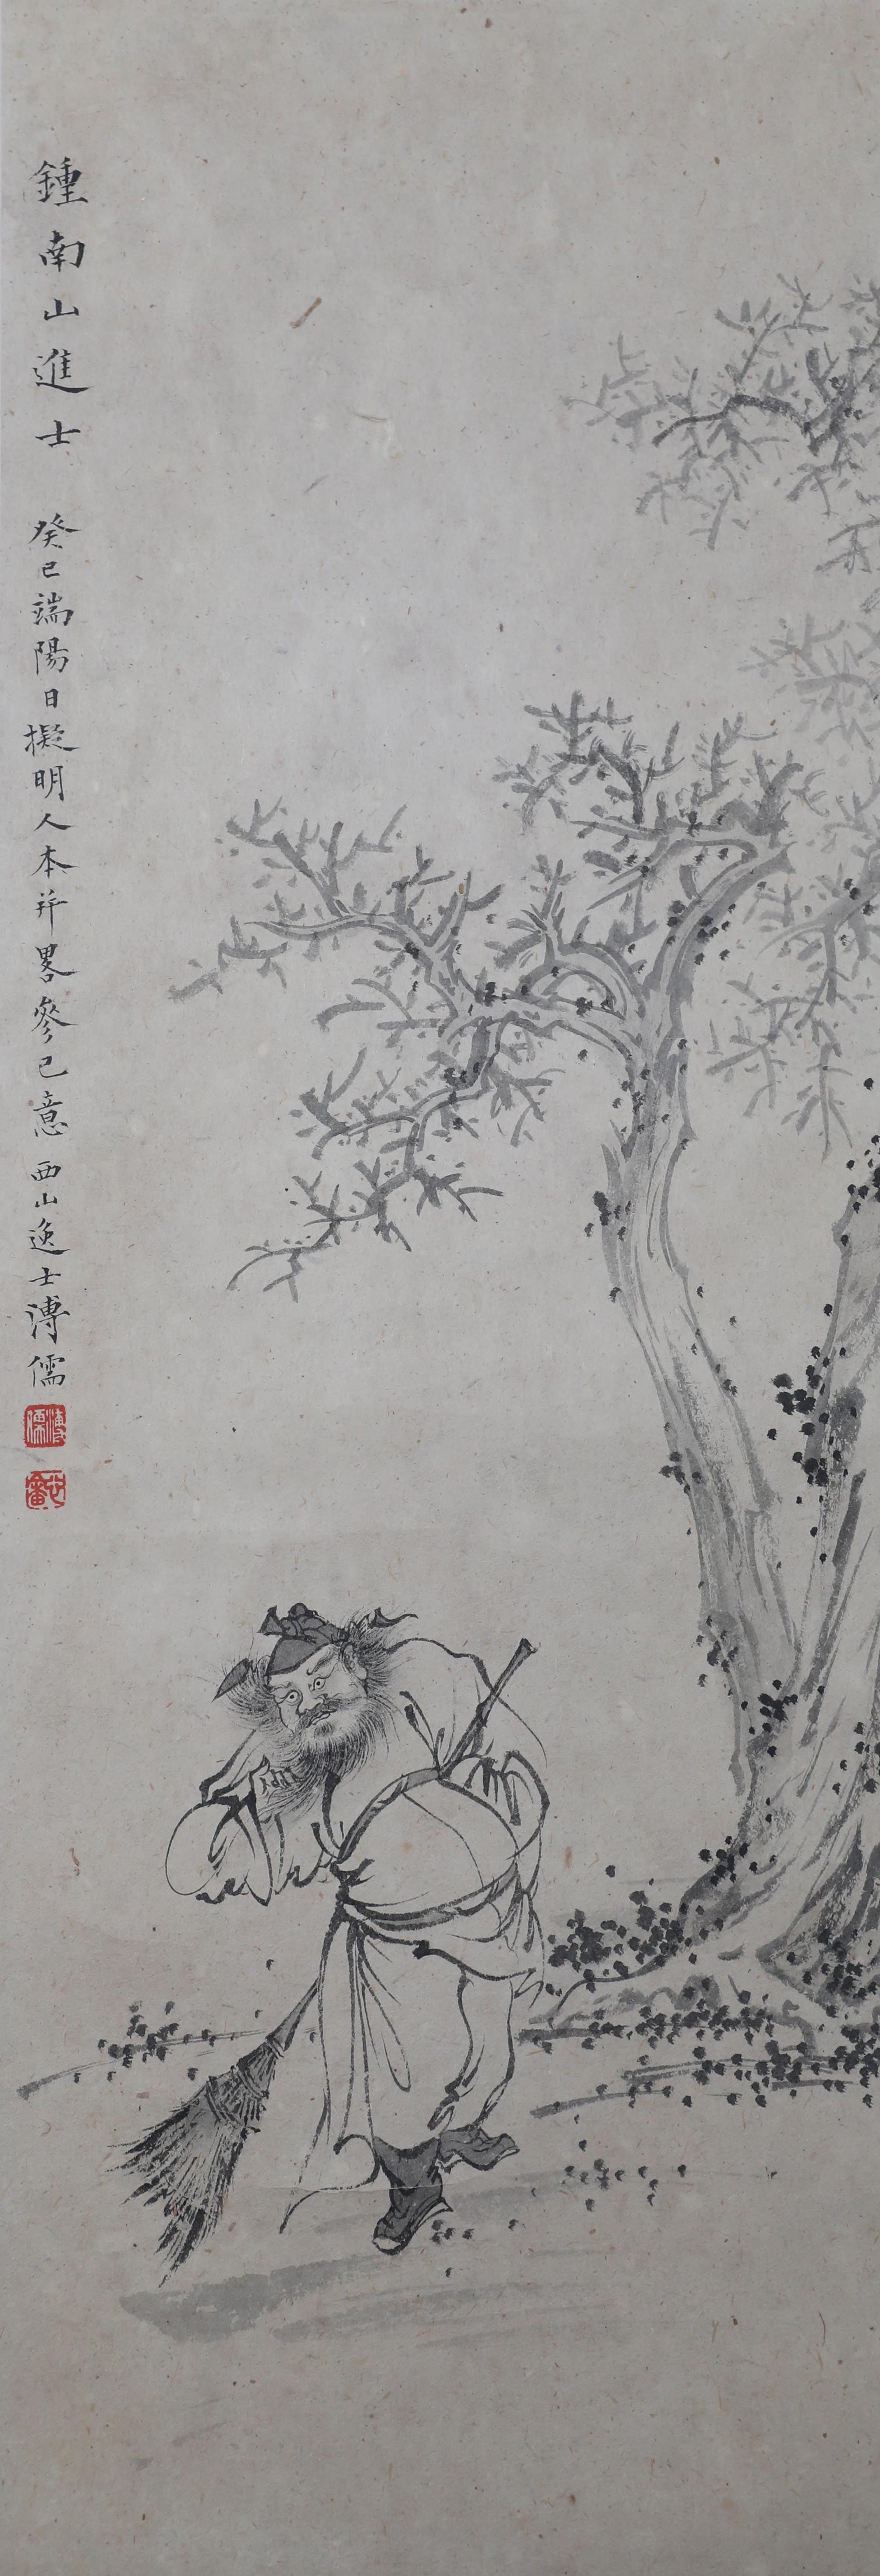 鍾南山進士 癸巳端陽日擬明人本并畧參己意 西山逸士溥儒
溥儒